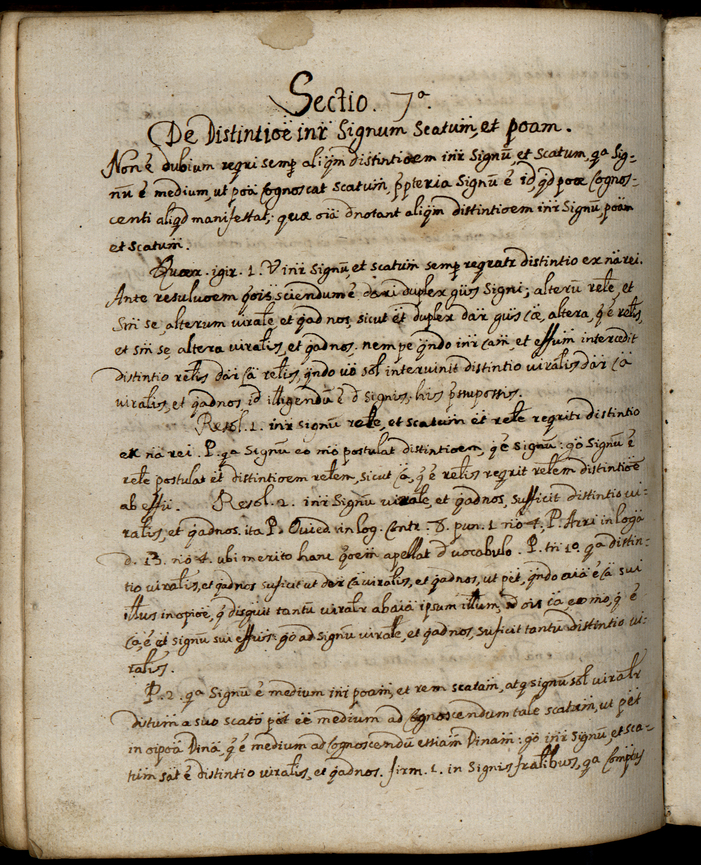 Sectio. 7ª.
De Distintioē inr̄ Signum Scatum̄, et poam.
Non ē dubium reqri semp aliqm̄ distintioem inr̄ Signū, et Scatum, qª Sig=
nū ē medium, ut poā Cognoscat Scatum̄, pp̄teria Signū ē id, qd̄ poæ Cognos=
centi aliqd manifestat; quæ oīā dnotant aliqm̄ distintioem inr̄ Signū, poam̄
et scatum̄.
Quær. igir. 1. V inr̄ Signū, et scatum̄ semp reqratr distintio ex nā rei.
Ante resuluoem qōis, sciendum ē dari duplex gūs Signi; alterū rel̄e, et
Sm̄ se, alterum viral̄e, et qad nos, sicut ēt duplex dar gūs cæ, altera, q̄ ē rel̄is,
et sm̄ se, altera viral̄is, et qadnos. nempe qndo inr̄ cam̄, et effum̄ intercedit
distintio rel̄is dar cā rel̄is, qndo vō sol̄ intervinit distintio viral̄is dar cā
viral̄is, et qadnos id illigendū ē d Signis, his p̄suppositis.
Resol. 1. inr̄ signū rel̄e, et scatum̄ ēt rel̄e reqritr distintio
ex nā rei. P. qª Signū eo mō postulat distintioem, q̄ ē signū: gō Signū ē
rel̄e postulat ēt distintioem rel̄em, sicut cā, q̄ ē rel̄is reqrit rel̄em distintioē
ab effū. Resol. 2. inr̄ Signū viral̄e, et qadnos, sufficit distintio vi=
ral̄is, et qadnos. ita P. Ovied in log. Contr. 8. pun. 1 nō 4. P. Arri in loga
d. 13. nō 4. ubi merito hanc qōem apellat d vocabulo. P. tn̄ 1º. qª distin=
tio viral̄is, et qadnos suficit ut dar cā viral̄is, et qadnos, ut pēt, qndo aīa ē cā sui
illius in opioē, q̄ disquit tantū viralr ab aīa ipsum illum, sd ois cā eo mō, q̄ ē
cā, ē et signū sui effūs: gō ad signū viral̄e, et qadnos, suficit tantū distintio vi=
ral̄is.
P. 2. qª Signū ē medium inr̄ poam̄, et rem scatam̄, atq signū sol̄ viralr
ditum̄ a suo scato pōt eē medium ad Cognoscendum tale scatum̄, ut pēt
in oīpoā Dinā, q̄ ē medium ad Cognoscendū essiam̄ Dinam̄: gō inr̄ Signū, et sca=
tum̄ sat ē distintio viral̄is, et qadnos. firm. 1. in Signis fralibus, qª